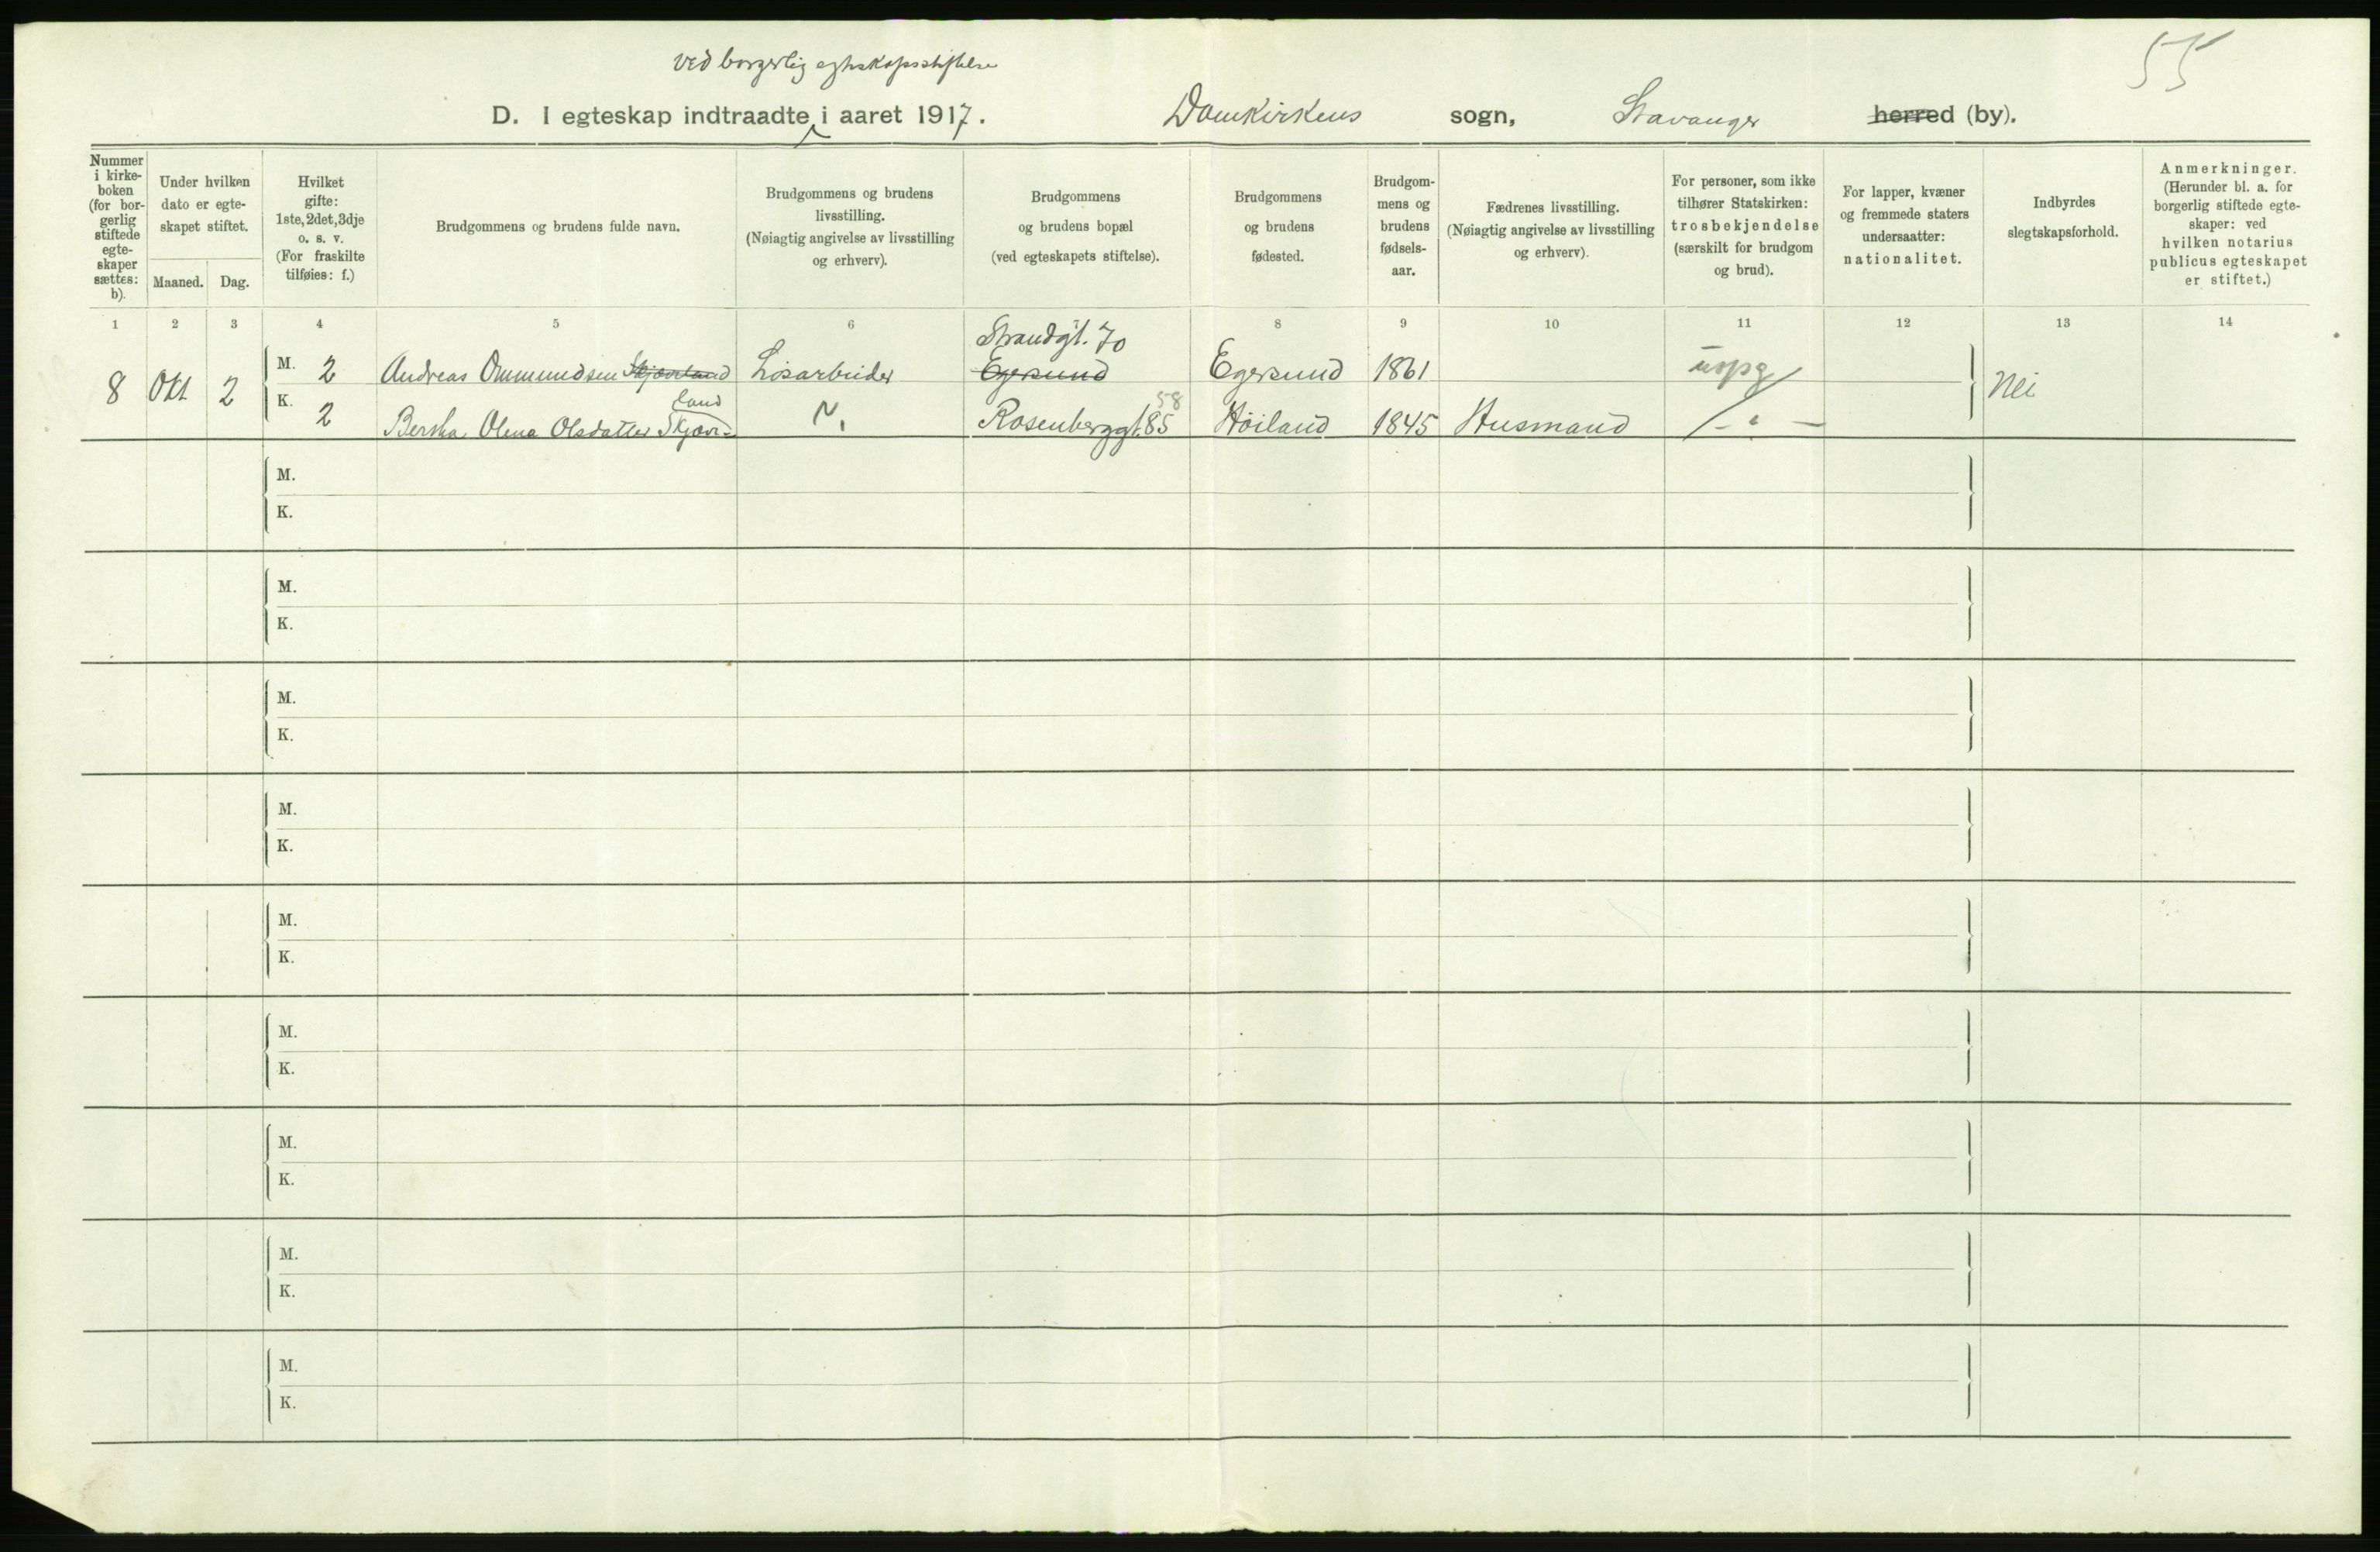 55
ved borgerlig egteskapsstiftelse
D. I egteskap indtraadte i aaret 1917. Domkirkens sogn, Stavanger herred (by).
Nummer i kirke-boken (for bor-gerlig stiftede egte-skaper sættes: b).
Under hvilken dato er egte-skapet stiftet.
Maaned. Dag.
Hvilket gifte: 1ste, 2det, 3dje o. s. v. (For fraskilte tilføies: f.)
Brudgommens og brudens fulde navn.
Brudgommens og brudens livsstilling. (Nøiagtig angivelse av livsstilling og erhverv).
Brudgommens og brudens bopæl (ved egteskapets stiftelse).
Brudgommens og brudens fødested.
Brudgom-mens og brudens fødsels-aar.
Fædrenes livsstilling. (Nøiagtig angivelse av livsstilling og erhverv).
For personer, som ikke tilhører Statskirken: trosbekjendelse (særskilt for brudgom og brud).
For lapper, kvæner og fremmede staters undersaatter: nationalitet.
Indbyrdes slegtskapsforhold.
Anmerkninger. (Herunder bl. a. for borgerlig stiftede egte-skaper: ved hvilken notarius publicus egteskapet er stiftet.)
1 2 3 4 5 6 8 9 10 11 12 13 14
Strandgt. 70
8 Okt 2 M. 2 Andreas Ommundsen Skjæveland Løsarbeider Egersund Egersund 1861 uopg Nei
land 58
K. 2 Bertha Olena Olsdatter Skjæve- Rosenberggt. 85 Høiland 1845 Husmand -"-
M.
K.
M.
K.
M.
K.
M.
K.
M.
K.
M.
K.
M.
K.
M.
K.
M.
K.